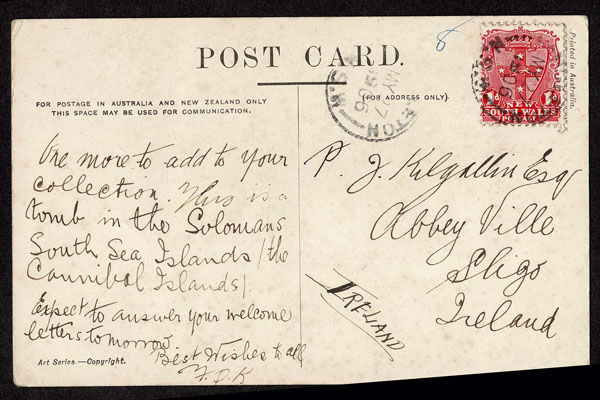 POST CARD.
FOR POSTAGE IN AUSTRALIA AND NEW ZEALAND ONLY
THIS SPACE MAY BE USED FOR COMMUNICATION.
(FOR ADDRESS ONLY)
8
Printed in Australia.
NEW
SOUTH WALES
POSTAGE
One more to add to your
collection. This is a
tomb in the Solomans
South Sea Islands (the
Cannibal Islands).
Expect to answer your welcome
letters tomorrow
Best Wishes to all
F.D.K
Art Series.—Copyright.
P. J. Kilgallin Esq
Abbey Ville
Sligo
Ireland
IRELAND